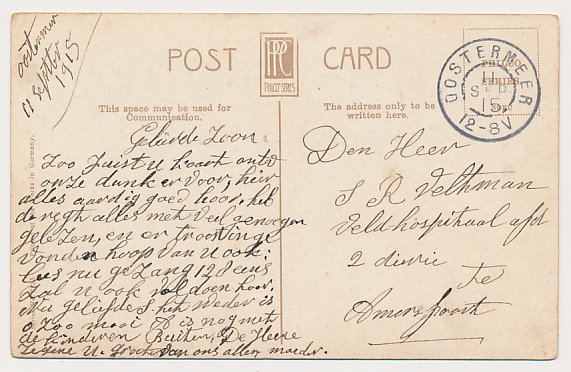 oostermeer
11 Septber
1915
POST CARD
PPC
PHILCO SERIES
PHILCO
SERIES
OOSTERMEER
11
SEP
15
12-8V
This space may be used for
Communication.
The address only to be
written here.
in Germany.
Geliefde Zoon
Zoo juist u kaart ontv
onze dank er voor, hier
alles aardig goed hoor, heb
alles met veel genoegen
gelezen, en er troostinge
vonden hoop van u ook:
Lees nu gezang 128 eens
zal u ook vol doen hoor.
Nu geliefde S. het weder is
o zoo mooi A is nog met
de kinderen Buiten, De Heere
zegene U. groeten van ons allen moeder.
Den Heer
S R Velthman
Veldhospitaal afd
2 divisie
te
Amersfoort